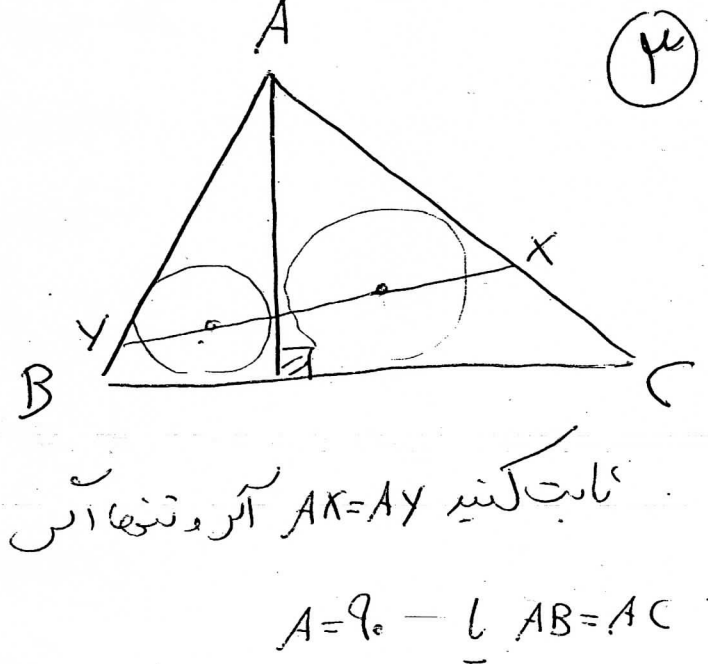 ۳
A
X
Y
B
C
ثابت کنید AX=AY اگر و تنها اگر
AB=AC یا A=۹۰